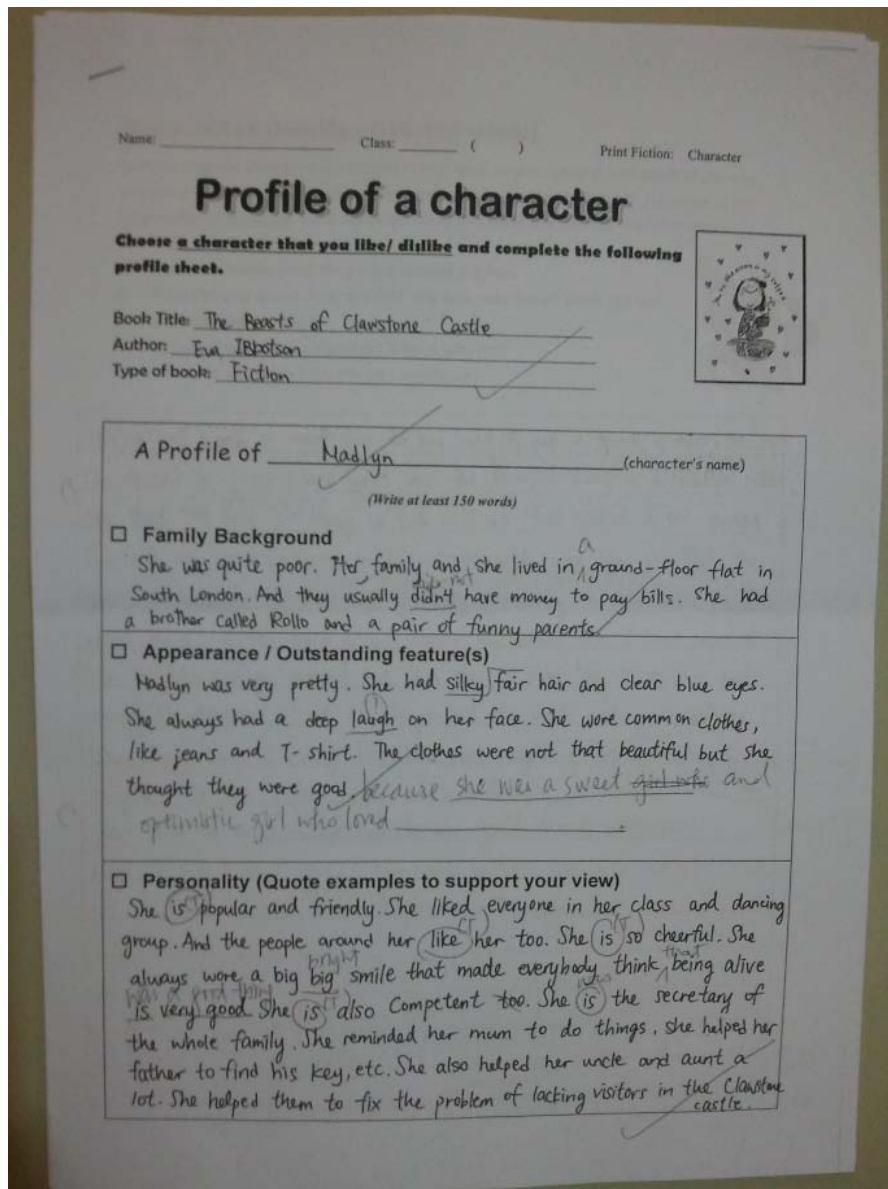 Name: Class: ( ) Print Fiction: Character
Profile of a character
Choose a character that you like/ dislike and complete the following
profile sheet.
Book Title: The Beasts of Clawstone Castle
Author: Eva IBbotson
Type of book: Fiction
A Profile of Madlyn (character's name)
(Write at least 150 words)
☐ Family Background
a
She was quite poor. Her family and she lived in ground-floor flat in
South London. And they usually didn't have money to pay bills. She had
a brother called Rollo and a pair of funny parents
☐ Appearance / Outstanding feature(s)
Madlyn was very pretty. She had silky fair hair and clear blue eyes.
She always had a deep laugh on her face. She wore common clothes,
like jeans and T-shirt. The clothes were not that beautiful but she
thought they were good, because she was a sweet girl who and
optimistic girl who loved .
☐ Personality (Quote examples to support your view)
She is popular and friendly. She liked everyone in her class and dancing
group. And the people around her like her too. She is so cheerful. She
bright that
always wore a big big smile that made everybody think being alive
was a good thing was
is very good She is also Competent too. She is the secretary of
the whole family. She reminded her mum to do things. she helped her
father to find his key, etc. She also helped her uncle and aunt a
lot. She helped them to fix the problem of lacking visitors in the Clawstone
castle.